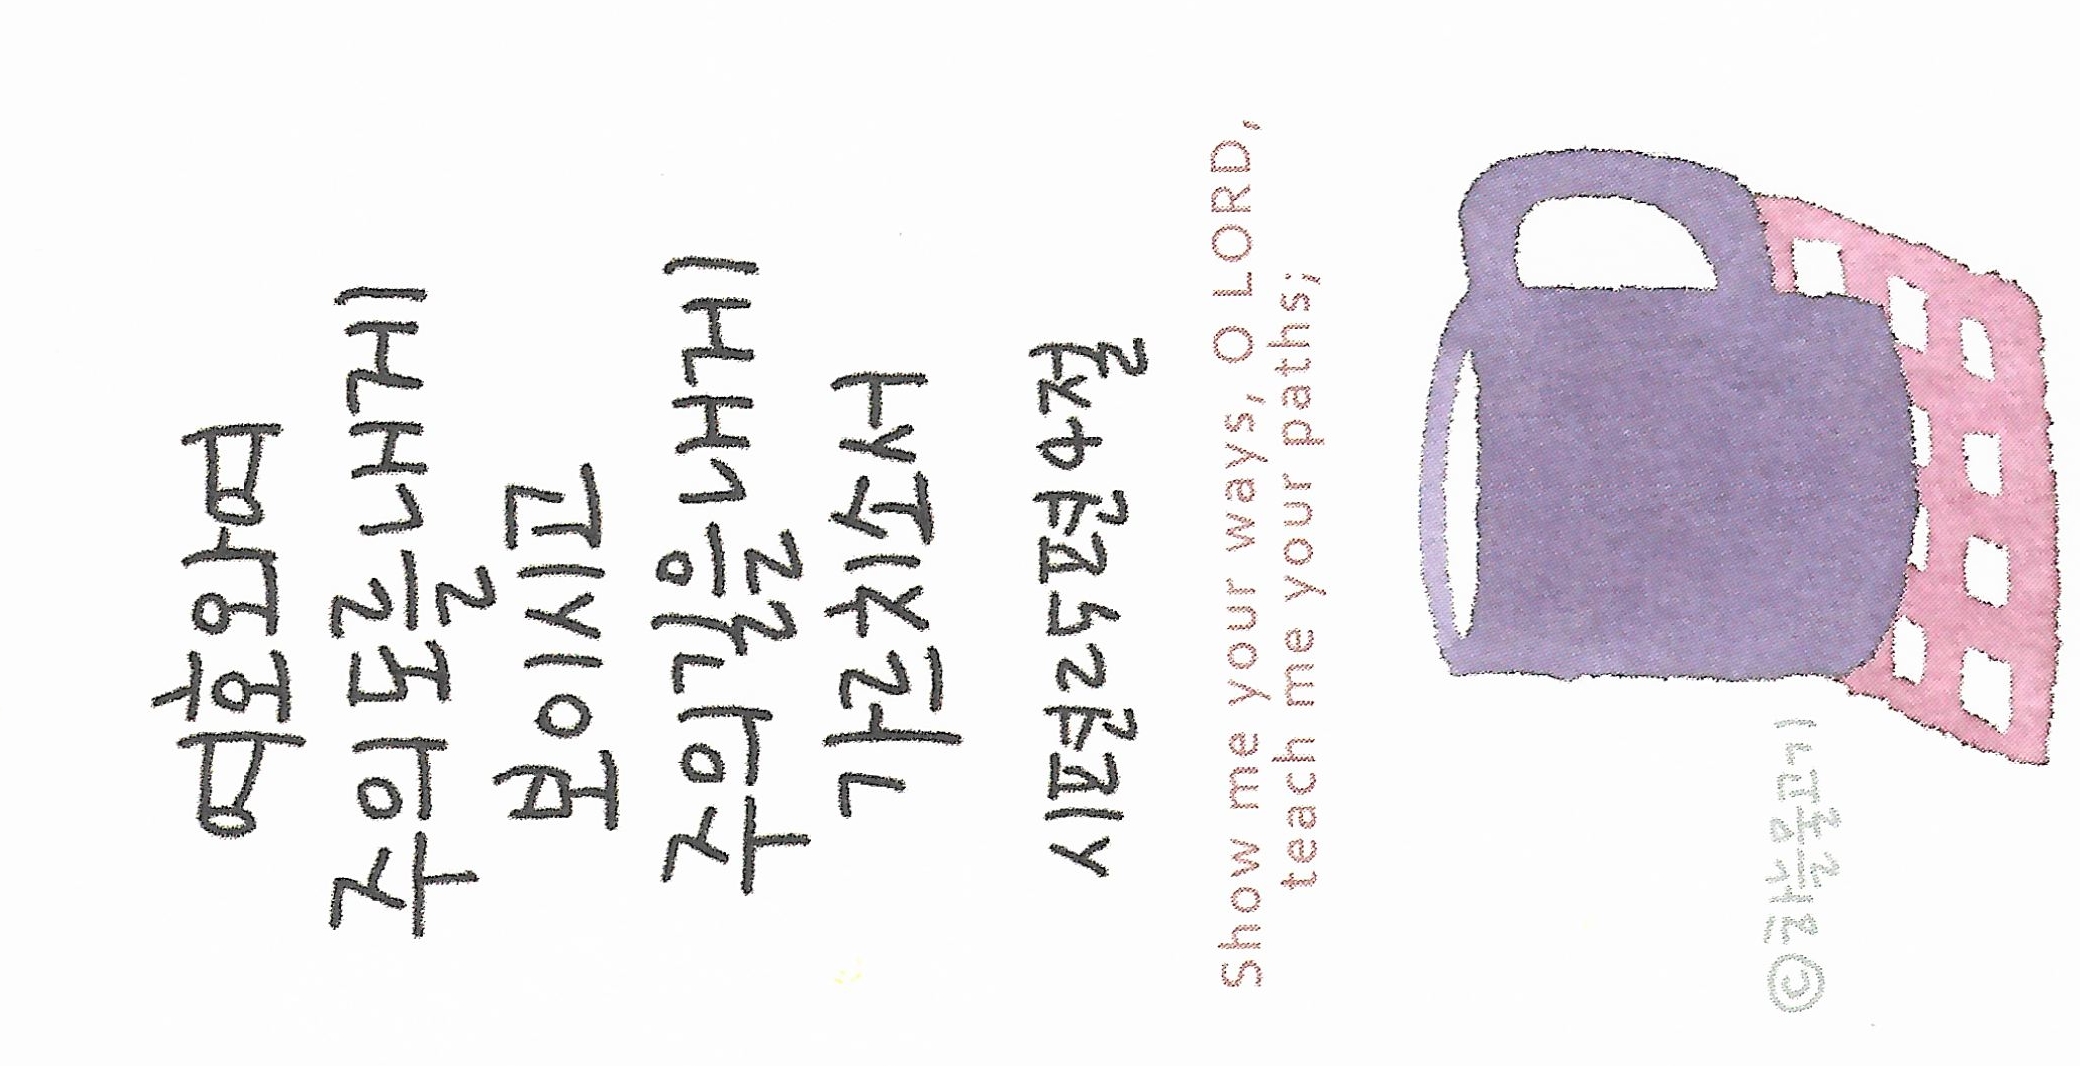 여호와여
주의 도를 내게
보이시고
주의 길을 내게
가르치소서
시편 25편 4절
Show me your ways, O LORD,
teach me your paths;
©하늘물고기